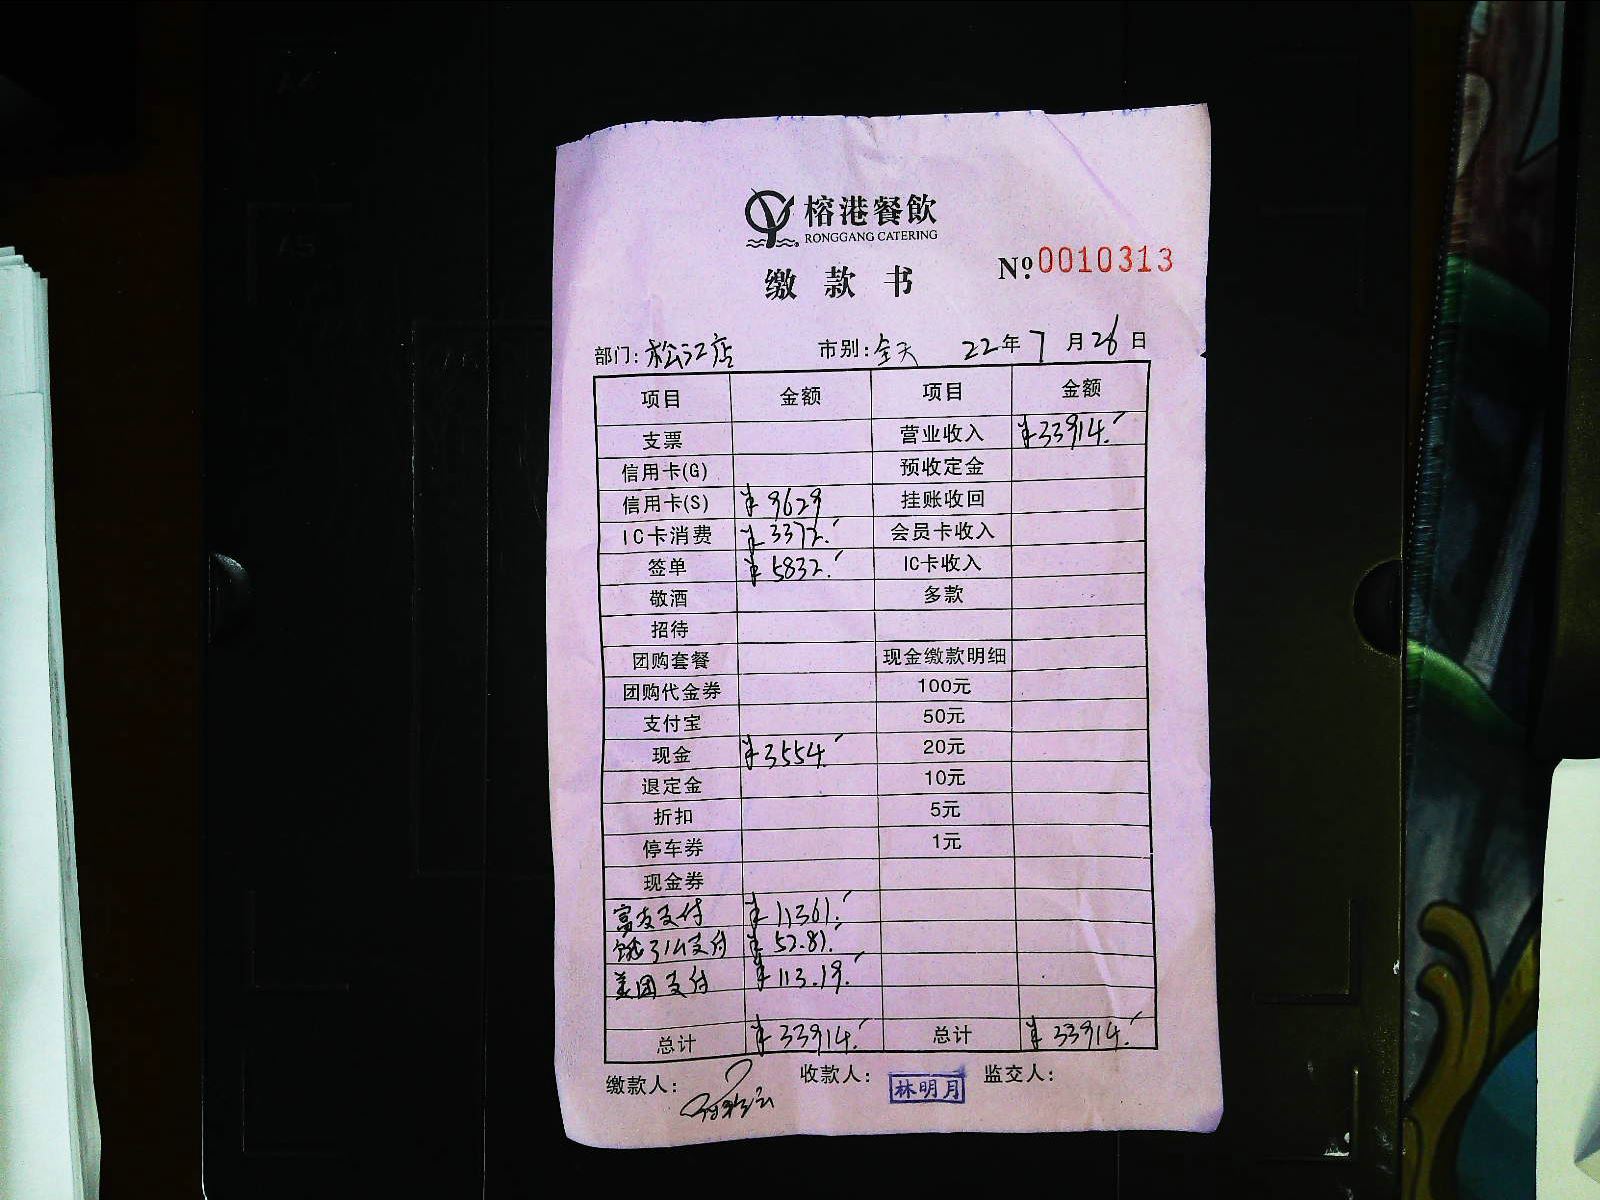 榕港餐飲
RONGGANG CATERING
缴款书 №0010313
部门: 松江店 市别: 全天 22年7月26日
项目 金额 项目 金额
支票 营业收入 ¥33914.
信用卡(G) 预收定金
信用卡(S) ¥9629 挂账收回
IC卡消费 ¥3372. 会员卡收入
签单 ¥5832. IC卡收入
敬酒 多款
招待
团购套餐 现金缴款明细
团购代金券 100元
支付宝 50元
现金 ¥3554. 20元
退定金 10元
折扣 5元
停车券 1元
现金券
富友支付 ¥11361.
饿了么支付 ¥52.81.
美团支付 ¥113.19.
总计 ¥33914. 总计 ¥33914.
缴款人: 收款人: 林明月 监交人: